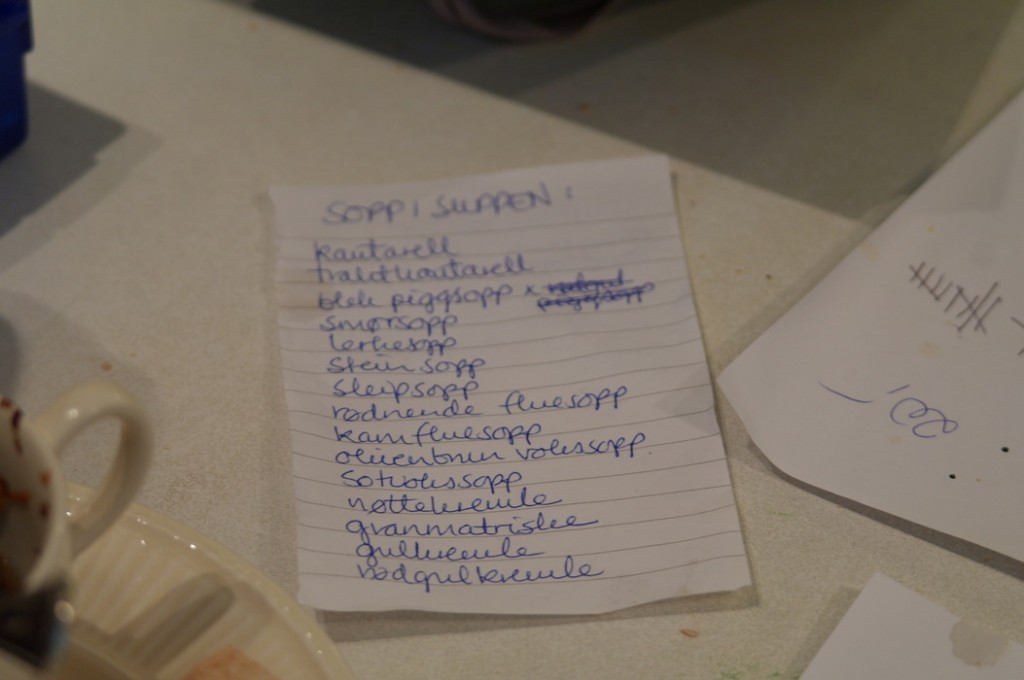 SOPP I SUPPEN:
kantarell
traktkantarell
blek piggsopp x
smørsopp
lerkesopp
steinsopp
sleipsopp
rødnende fluesopp
kamfluesopp
olivenbrun vokssopp
sotvokssopp
nøttekremle
granmatriske
gullkremle
rødgul kremle